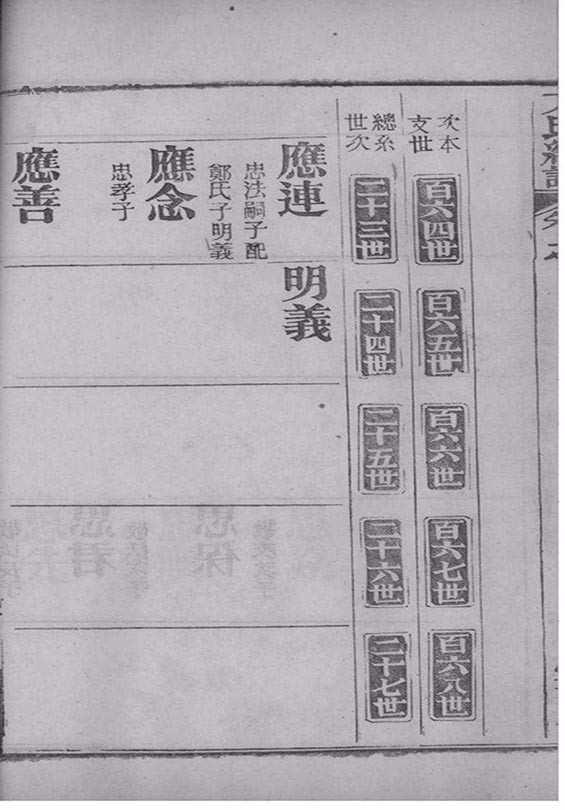 氏統譜
本支世次
百六四世
百六五世
百六六世
百六七世
百六八世
總系世次
二十三世
二十四世
二十五世
二十六世
二十七世
應連
忠法嗣子配
鄭氏子明義
應念
忠孝子
應善
明義